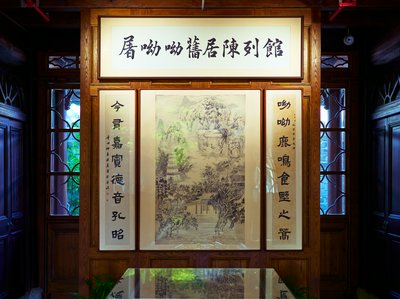 屠呦呦舊居陳列館
呦呦鹿鳴食野之蒿
今嘉賓德音孔昭